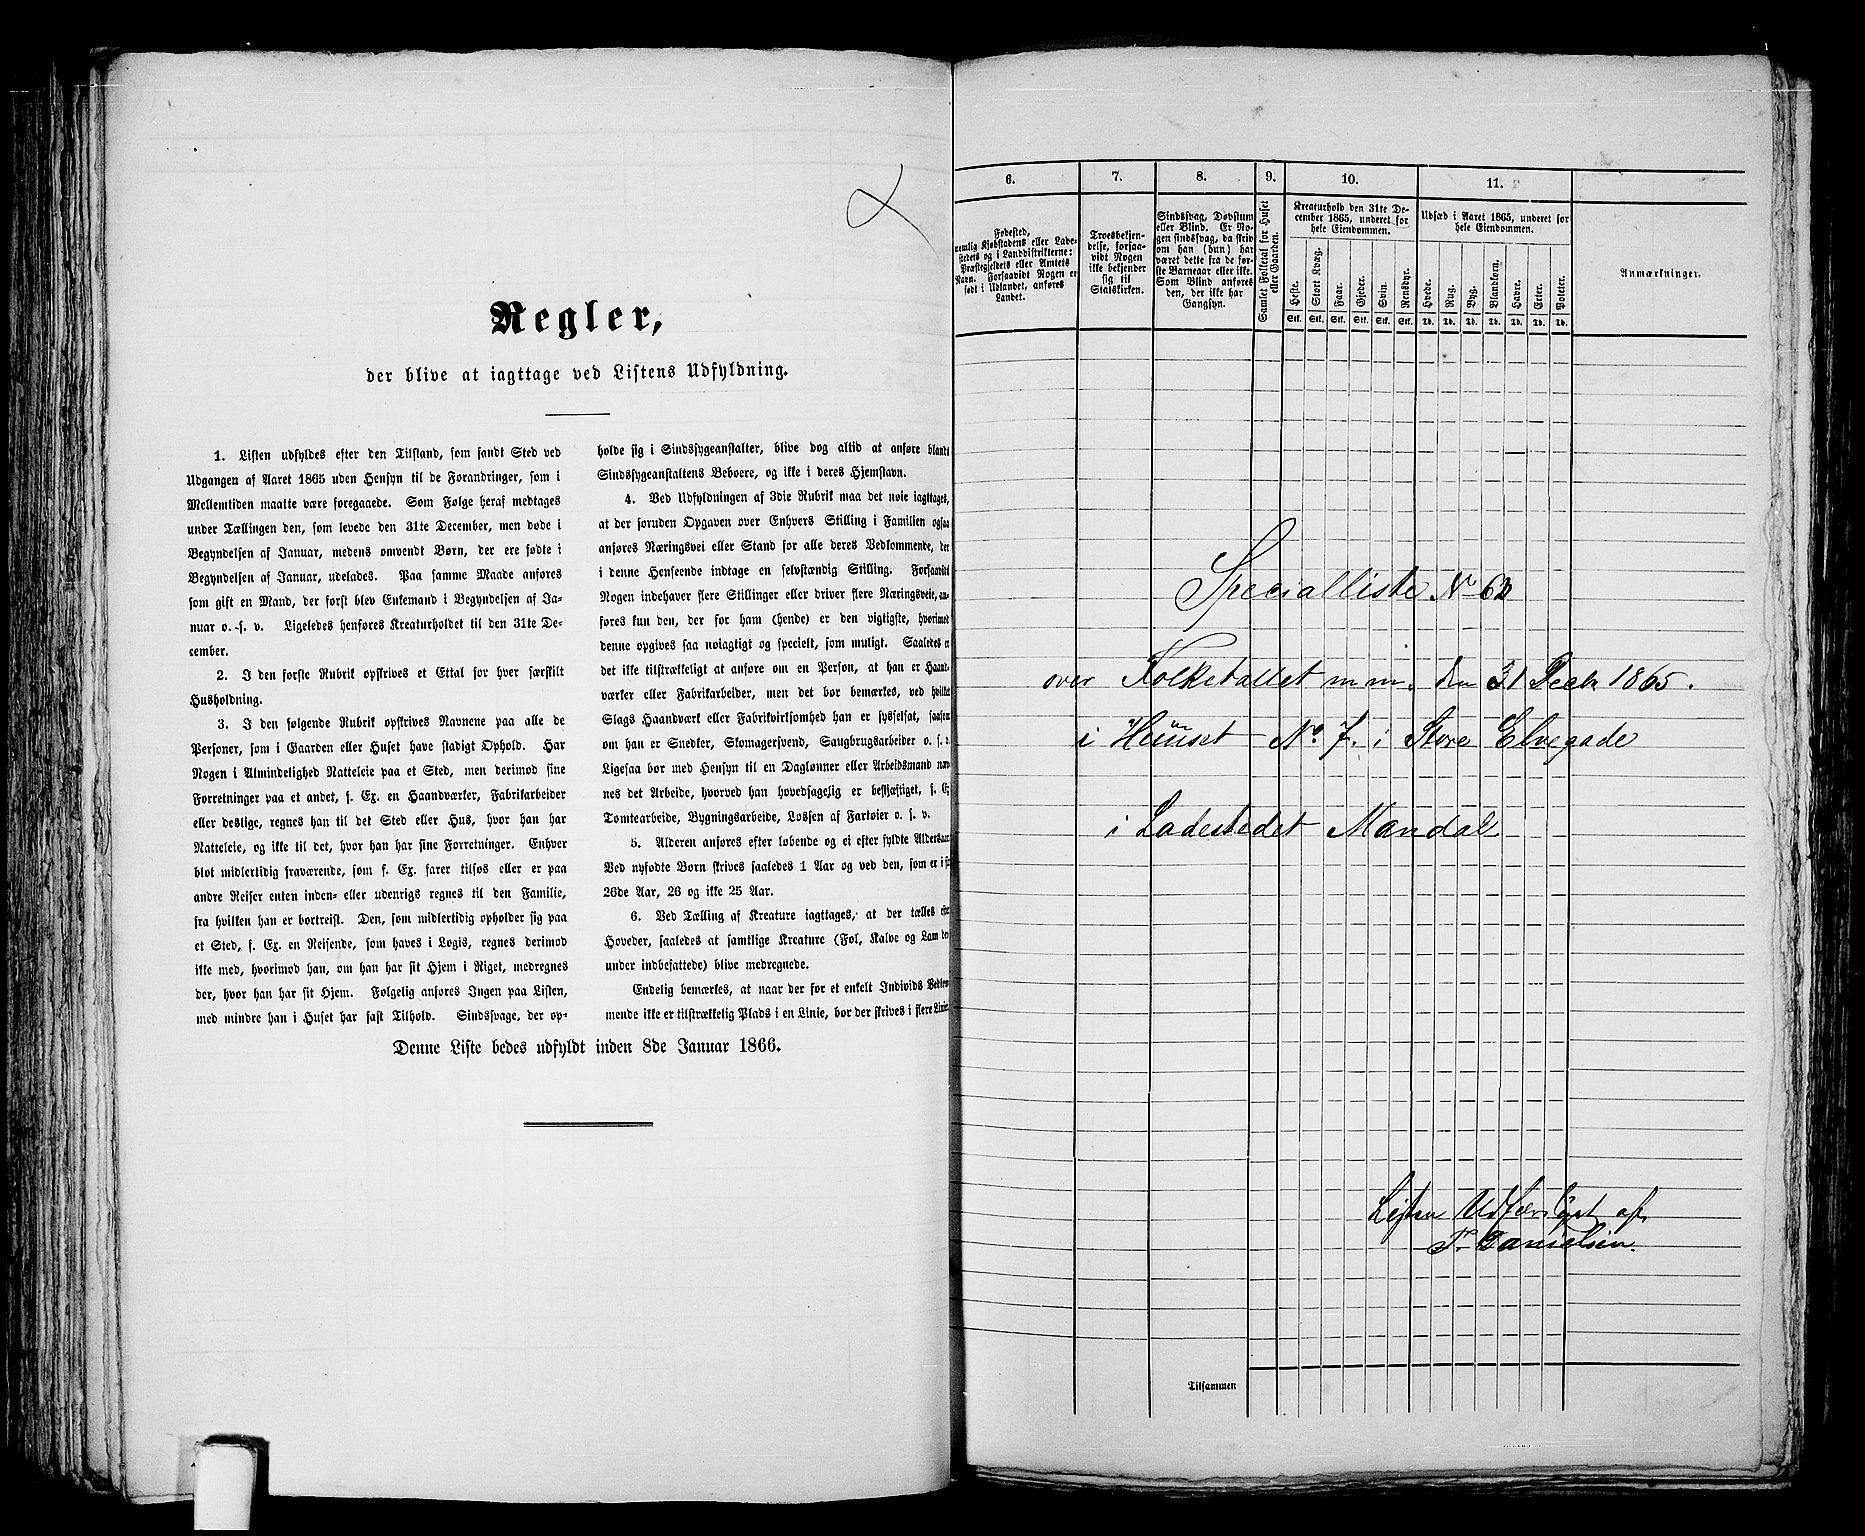 Regler,
der blive at iagttage ved Listens Udfyldning.
1. Listen udfyldes efter den Tilstand, som fandt Sted ved
Udgangen af Aaret 1865 uden Hensyn til de Forandringer, som i
Mellemtiden maatte være foregaaede. Som Følge heraf medtages
under Tællingen den, som levede den 31te December, men døde i
Begyndelsen af Januar, medens omvendt Børn, der ere fødte i
Begyndelsen af Januar, udelades. Paa samme Maade anføres
som gift en Mand, der først blev Enkemand i Begyndelsen af Ja-
nuar o. s. v. Ligeledes henføres Kreaturholdet til den 31te De-
cember.
2. I den første Rubrik opskrives et Ettal for hver særskilt
Husholdning.
3. I den følgende Rubrik opskrives Navnene paa alle de
Personer, som i Gaarden eller Huset have stadigt Ophold. Har
Nogen i Almindelighed Natteleie paa et Sted, men derimod sine
Forretninger paa et andet, f. Ex. en Haandværker, Fabrikarbeider
eller deslige, regnes han til det Sted eller Hus, hvor han har
Natteleie, og ikke til det, hvor han har sine Forretninger. Enhver
blot midlertidig fraværende, som f. Ex. farer tilsøs eller er paa
andre Reiser enten inden- eller udenrigs regnes til den Familie,
fra hvilken han er bortreist. Den, som midlertidig opholder sig paa
et Sted, f. Ex. en Reisende, som haves i Logis, regnes derimod
ikke med, hvorimod han, om han har sit Hjem i Riget, medregnes
der, hvor han har sit Hjem. Følgelig anføres Ingen paa Listen,
med mindre han i Huset har fast Tilhold. Sindssvage, der op-
holde sig i Sindssygeanstalter, blive dog altid at anføre blandt
Sindssygeanstaltens Beboere, og ikke i deres Hjemstavn.
4. Ved Udfyldningen af 3die Rubrik maa det nøie iagttages,
at der foruden Opgaven over Enhvers Stilling i Familien ogsaa
anføres Næringsvei eller Stand for alle deres Vedkommende, der
i denne Henseende indtage en selvstændig Stilling. Forsaavidt
Nogen indehaver flere Stillinger eller driver flere Næringsveie, an-
føres kun den, der for ham (hende) er den vigtigste, hvorimod
denne opgives saa nøiagtigt og specielt, som muligt. Saaledes er
det ikke tilstrækkeligt at anføre om en Person, at han er Haand-
værker eller Fabrikarbeider, men det bør bemærkes, ved hvilket
Slags Haandværk eller Fabrikvirksomhed han er sysselsat, saasom
om han er Snedker, Skomagersvend, Saugbrugsarbeider o. s. v.
Ligesaa bør med Hensyn til en Daglønner eller Arbeidsmand næv-
nes det Arbeide, hvorved han hovedsagelig er beskjæftiget, f. Ex.
Tomtearbeide, Bygningsarbeide, Lossen af Fartøier o. s. v.
5. Alderen anføres efter løbende og ei efter fyldte Aldersaar.
Ved nyfødte Børn skrives saaledes 1 Aar og ved den, som er i sit
26de Aar, 26 og ikke 25 Aar.
6. Ved Tælling af Kreature iagttages, at der tælles efter
Hoveder, saaledes at samtlige Kreature (Føl, Kalve og Lam der-
under indbefattede) blive medregnede.
Endelig bemærkes, at naar der for et enkelt Individs Vedkom-
mende ikke er tilstrækkelig Plads i en Linie, bør der skrives i flere Linier.
Denne Liste bedes udfyldt inden 8de Januar 1866.
6. 7. 8. 9. 10. 11.
Fødested,
nemlig Kjøbstadens eller Lade-
stedets og i Landdistrikterne:
Præstegjeldets eller Amtets
Navn. Forsaavidt Nogen er
født i Udlandet, anføres
Landet.
Troesbekjen-
delse, forsaa-
vidt Nogen
ikke bekjender
sig til
Statskirken.
Sindssvag, Døvstum
eller Blind. Er No-
gen sindssvag, da skriv
om han (hun) har
været dette fra de før-
ste Barneaar eller ikke.
Som Blind anføres
den, der ikke har
Gangsyn.
Samlet Folketal for Huset
eller Gaarden.
Kreaturhold den 31te De-
cember 1865, underet for
hele Eiendommen.
Heste. Stort Kvæg. Faar. Gjeder. Svin. Rensdyr.
Stk. Stk. Stk. Stk. Stk. Stk.
Udsæd i Aaret 1865, underet for
hele Eiendommen.
Hvede. Rug. Byg. Blandkorn. Havre. Erter. Poteter.
Td. Td. Td. Td. Td. Td. Td.
Anmærkninger.
Specialliste No 62
over Folketallet m. m. den 31 Decbr 1865.
i Huuset No. 7. i Store Elvegade
i Ladestedet Mandal
Listen Udfærdiget af
T. Danielsen.
Tilsammen